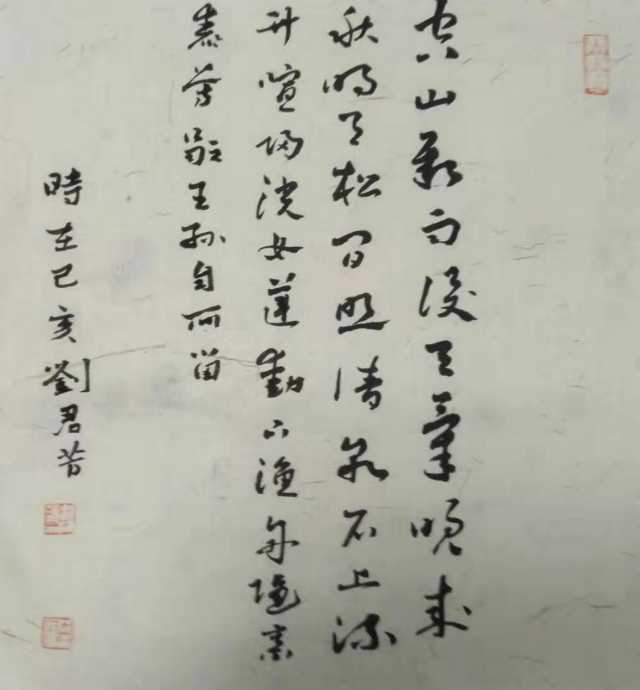 空山新雨後天氣晚來
秋明月松間照清泉石上流
竹喧歸浣女蓮動下漁舟隨意
春芳歇王孫自可留
時在己亥劉君芳